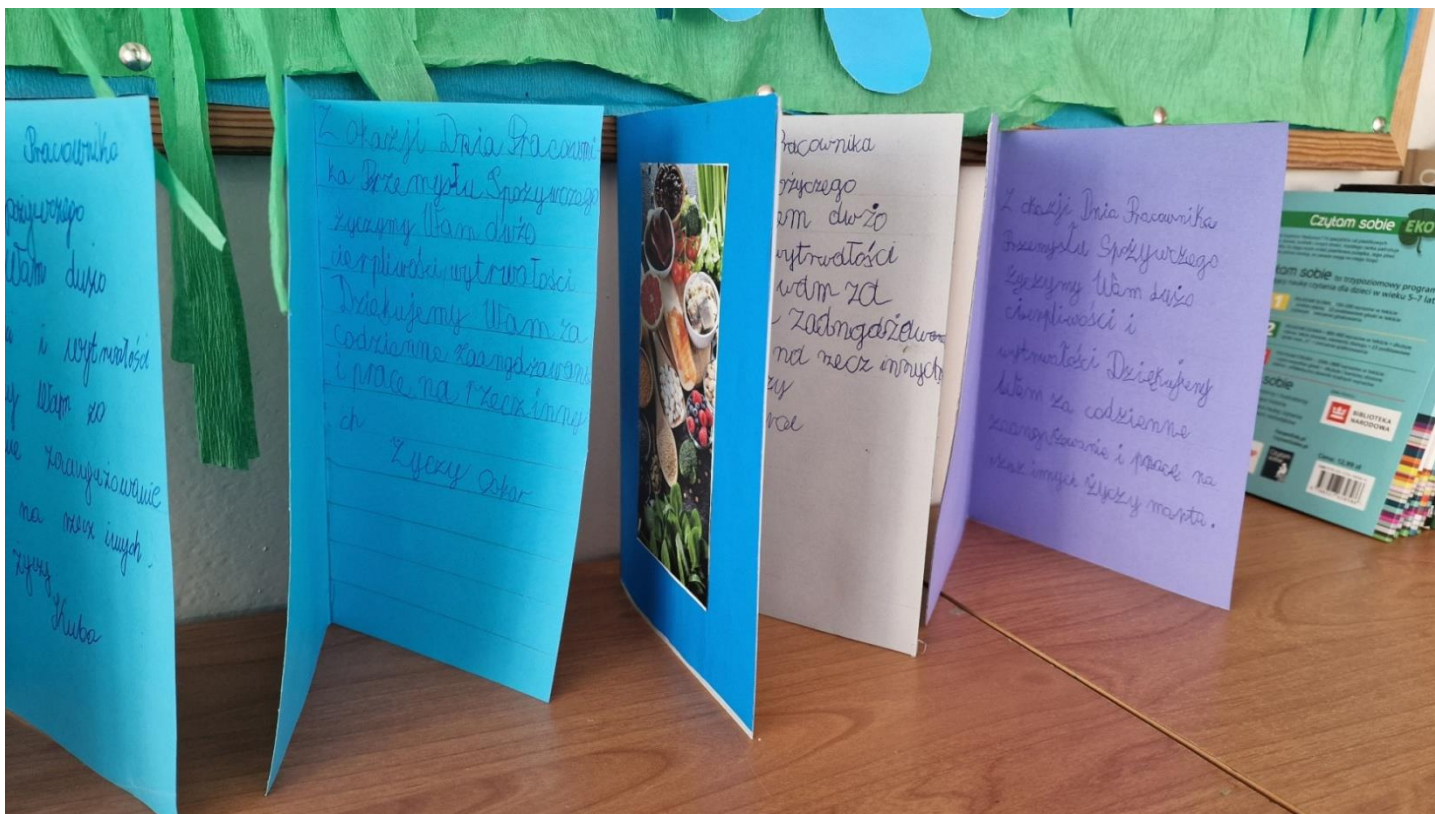 Pracownika
Wam dużo
i wytrwałości
Wam za
zaangażowanie
na rzecz innych.
życzy
Kuba
Z okazji Dnia Pracowni-
ka Przemysłu Spożywczego
życzymy Wam dużo
cierpliwości, wytrwałości
Dziękujemy Wam za
codzienne zaangażowanie
i pracę na rzecz inny
ch
Życzy Oskar
racownika
ożyczego
am dużo
wytrwałości
wam za
na rzecz innych
zy
Z okazji Dnia Pracownika
Przemysłu Spożywczego
Życzymy Wam dużo
cierpliwości i
wytrwałości Dziękujemy
Wam za codzienne
i pracę na
rzecz innych życzy marta.
Czytam sobie EKO
tam sobie to trzypoziomowy program
nauki czytania dla dzieci w wieku 5–7 lat
1
2
sobie
BIBLIOTEKA
NARODOWA
Cena: 12,99 zł